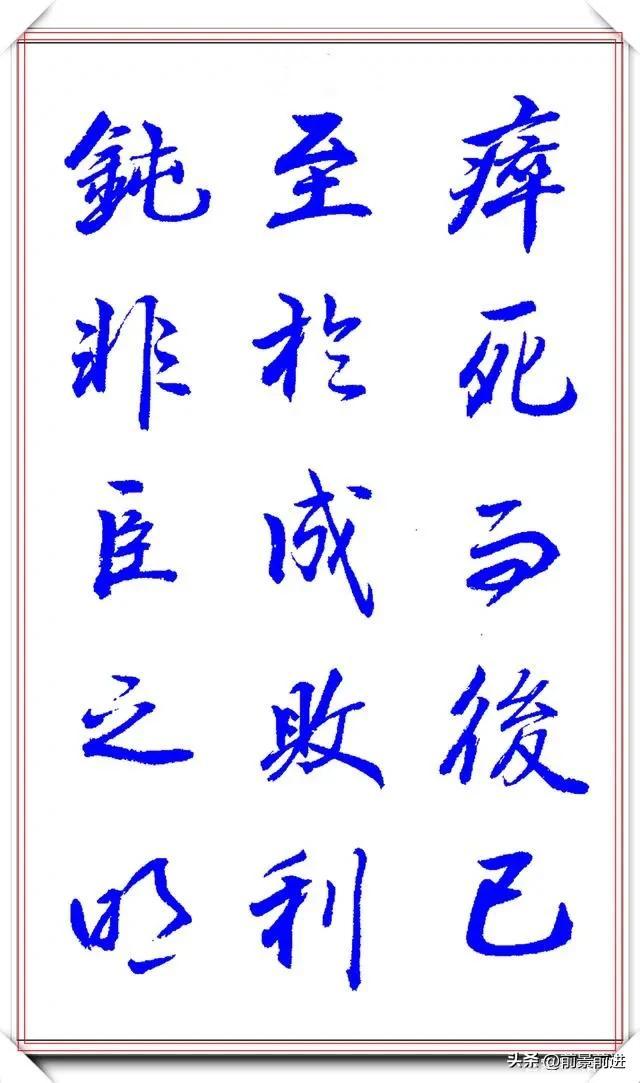 瘁死而後已
至於成敗利
鈍非臣之明
头条 @前景前进